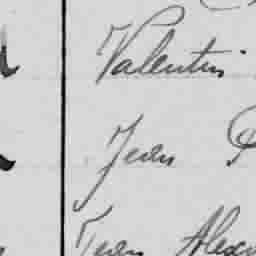 Valentin
Jean
Jean Alex